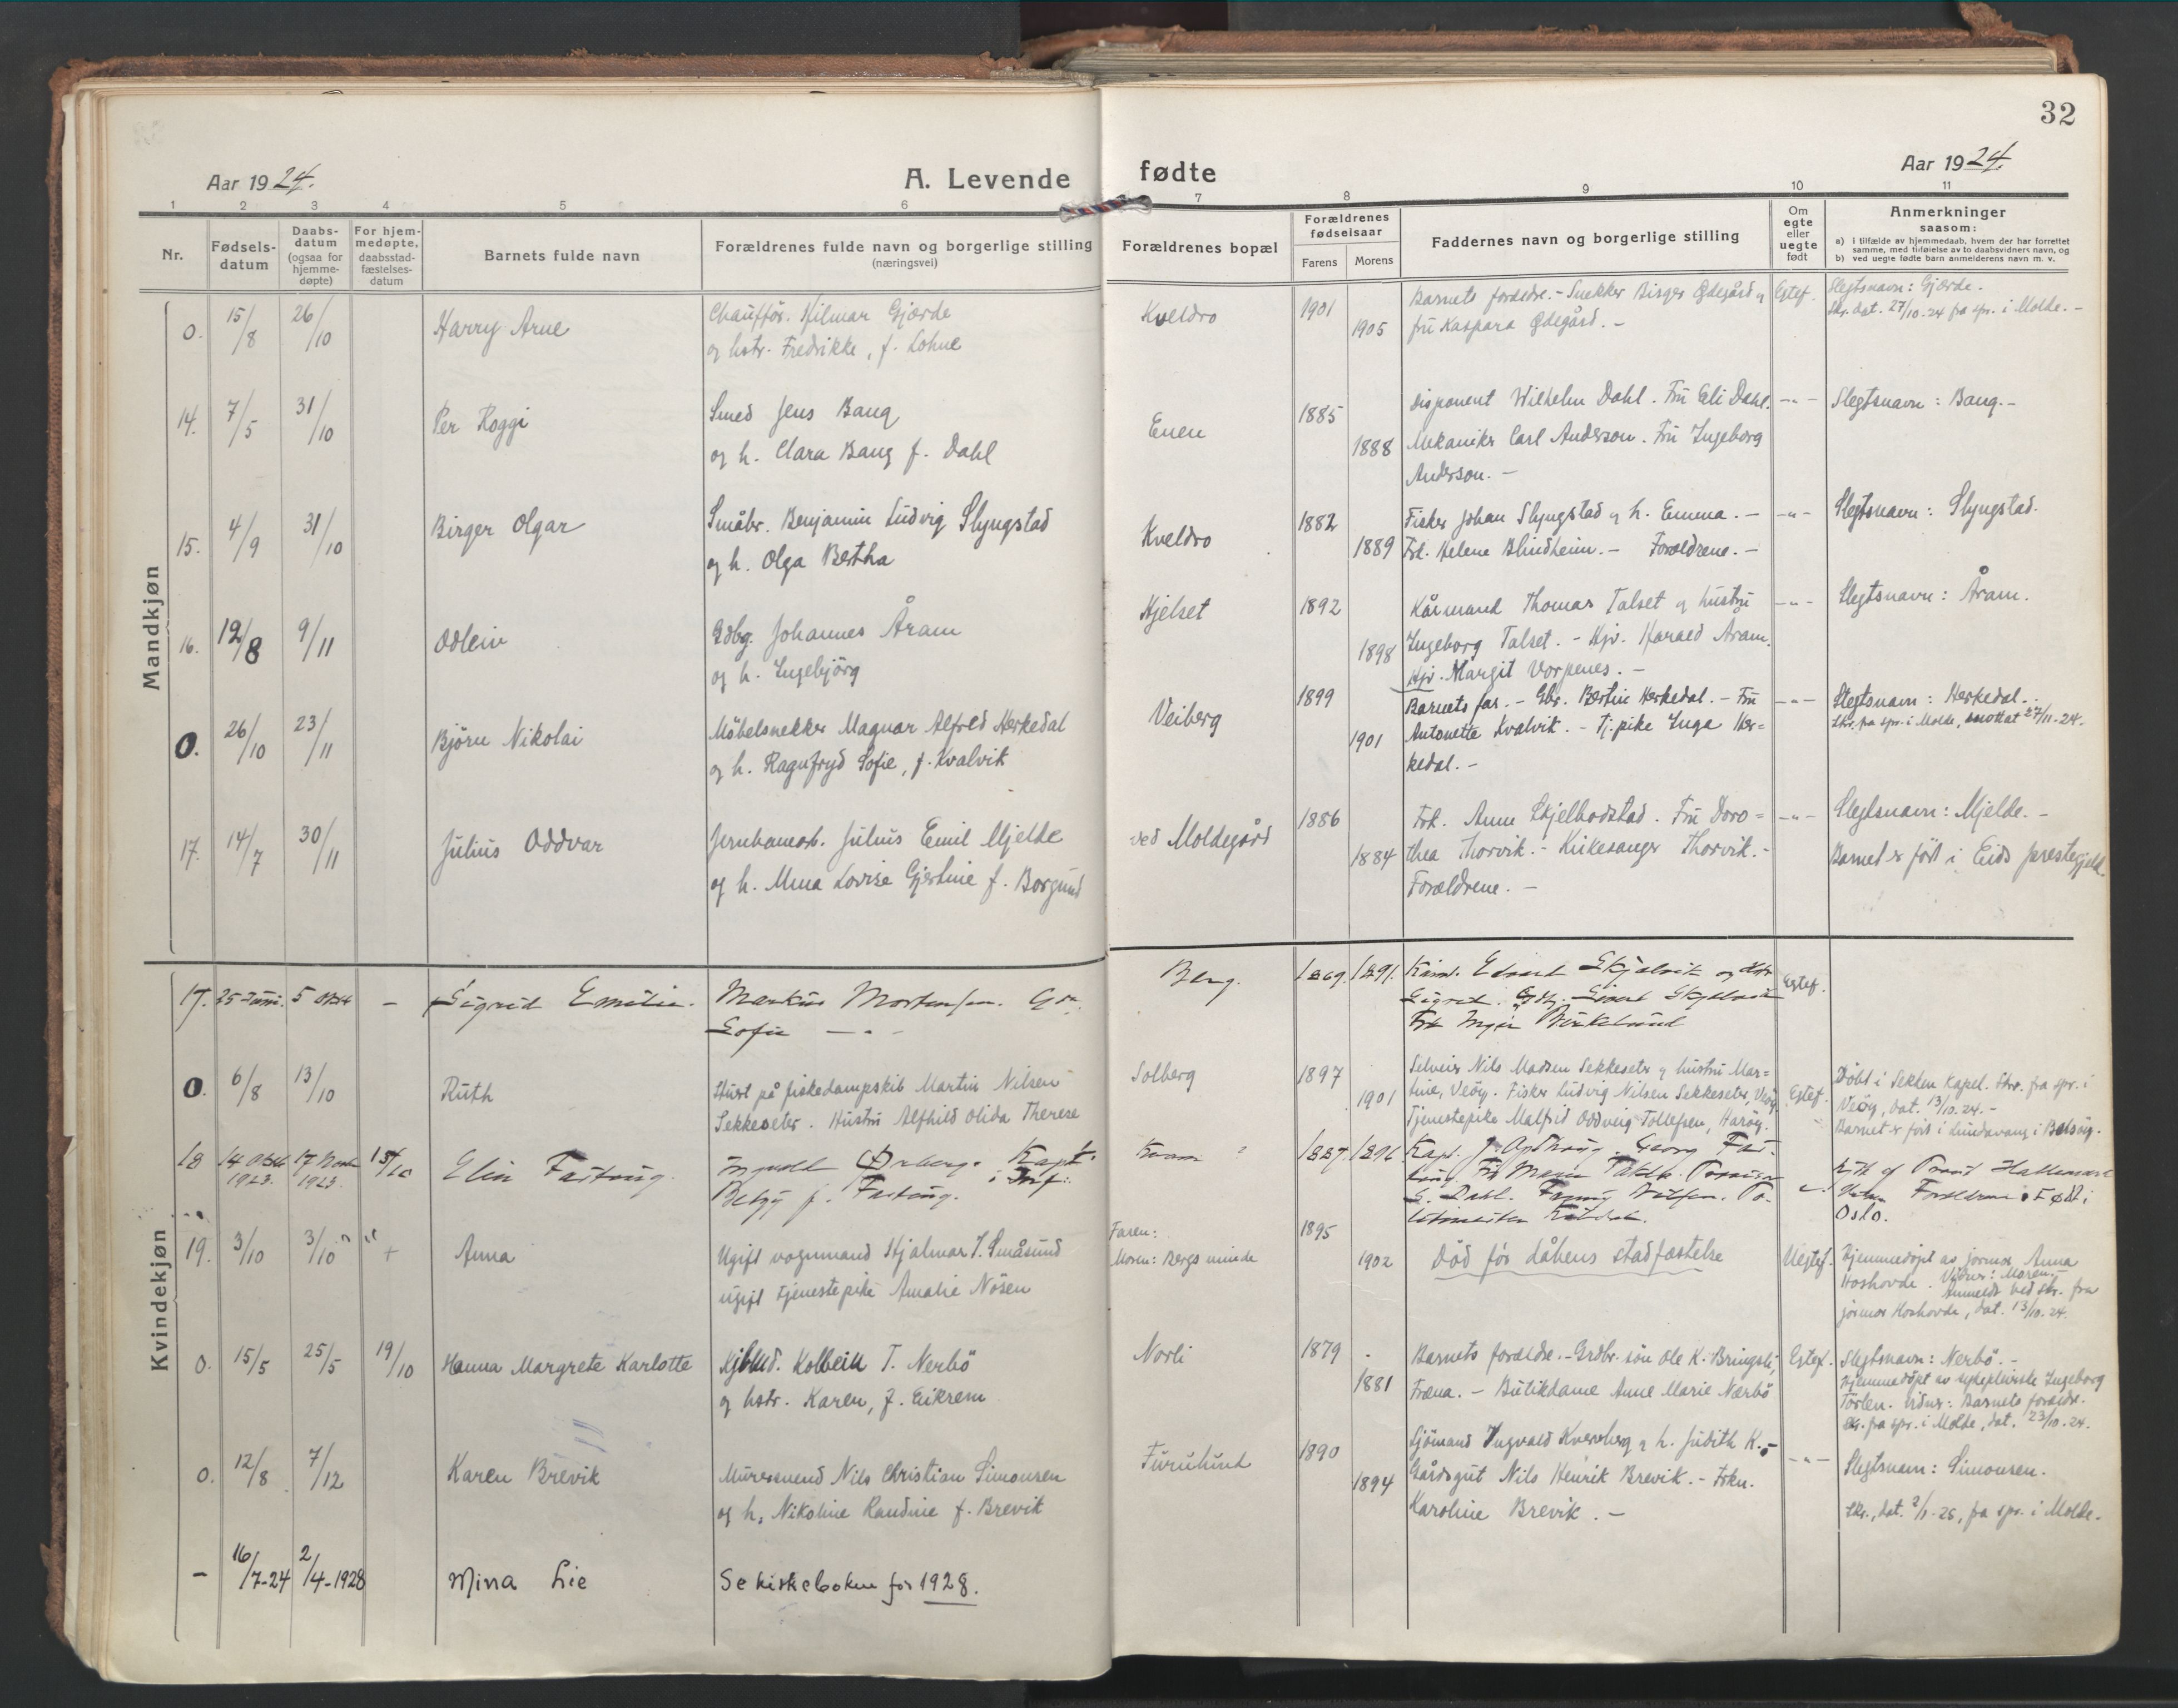 32
Aar 1924.
A. Levende fødte
Aar 1924.
1 2 3 4 5 6 7 8 9 10 11
Nr.
Fødsels-
datum
Daabs-
datum
(ogsaa for
hjemme-
døpte)
For hjem-
medøpte,
daabsstad-
fæstelses-
datum
Barnets fulde navn
Forældrenes fulde navn og borgerlige stilling
(næringsvei)
Forældrenes bopæl
Forældrenes
fødselsaar
Farens Morens
Faddernes navn og borgerlige stilling
Om
egte
eller
uegte
født
Anmerkninger
saasom:
a) i tilfælde av hjemmedaab, hvem der har forrettet
samme, med tilføielse av to daabsvidners navn, og
b) ved uegte fødte barn anmelderens navn m. v.
Mandkjøn
0. 15/8 26/10 Harry Arne
Chauffør. Hilmar Gjærde
og hstr. Fredrikke, f. Lohne
Kveldro 1901 1905
Barnets forældre. - Snekker Birger Ødegård og
fru Kaspara Ødegård. -
Egtef.
Slegtsnavn: Gjærde.
Skr. dat. 27/10-24 fra spr. i Molde. -
14. 7/5 31/10 Per Roggi
Smed Jens Bang
og h. Clara Bang f. Dahl
Enen 1885 1888
Disponent Wilhelm Dahl. Fru Eli Dahl.
Mekaniker Carl Anderson. Fru Ingeborg
Anderson. -
-"-
Slegtsnavn: Bang. -
15. 4/9 31/10 Birger Olgar
Småbr. Benjamin Ludvig Slyngstad
og h. Olga Bertha
Kveldro 1882 1889
Fisker Johan Slyngstad og h. Emma. -
Frk. Helene Blindheim. - Forældrene. -
-"-
Slegtsnavn: Slyngstad.
16. 12/8 9/11 Odleiv
Gdbg. Johannes Åram
og h. Ingebjörg
Hjelset 1892 1898
Kårmand Thomas Talset og hustru
Ingeborg Talset. - Hjv. Harald Åram.
Hjv. Margit Vorpenes. -
-"-
Slegtsnavn: Åram.
0. 26/10 23/11 Björn Nikolai
Möbelsnekker Magnar Alfred Herkedal
og h. Ragnfryd Sofie, f. Kvalvik
Veiberg 1899 1901
Barnets far. - Gbr. Bertin Herkedal. - Fru
Antonette Kvalvik. - Tj.pike Inga Her=
kedal. -
-"-
Slegtsnavn: Herkedal. -
Skr. fra spr. i Molde, mottat 27/11-24.
17. 14/7 30/11 Julius Oddvar
Jernbanearb. Julius Emil Mjelde
og h. Mina Lovise Gjertine f. Borgund
ved Moldegård 1886 1884
Frk. Anna Skjelbodstad. Fru Doro=
thea Thorvik. - Kirkesanger Thorvik. -
Forældrene. -
-"-
Slegtsnavn: Mjelde. -
Barnet er født i Eids prestegjeld.
Kvindekjøn
17. 25 Juni. 5 Oktb - Sigrid Emilie.
Markus Mortensen.
Sofie - " -
Berg. 1869. 1891.
Sigrid.
Egtef.
0. 6/8 13/10 Ruth
Stuert på fiskedampskib Martin Nilsen
Sekkeseter. Hustru Alfhild Olida Therese
Solberg 1897 1901
Selveier Nils Madsen Sekkeseter og hustru Mar=
tine, Veöy. Fisker Ludvig Nilsen Sekkeseter, Veöy
Tjenestepike Malfrid Oddveig Tollefsen, Haröy.
Egtef.
Döbt i Sekken Kapel. Skr. fra spr. i
Veöy, dat. 13/10.24. -
Barnet er født i Lundavang i Bolsöy.
18 14 Oktb 1923. 17 Novb 1923 Elin Fasting.
Ørberg. Kapt. i Inf.
Betzy f. Fasting.
Kvam
Kapt.
Georg
Forældrene. Født i
Oslo.
19. 3/10 3/10 + Anna
Ugift vognmand Hjalmar J. Småsund
ugift tjenestepike Amalie Nösen
Faren:
Moren: Bergs minde
1895 1902
Död för dåbens stadfæstelse
Uegtef.
Hjemmedöpt av jormor Anna
Hoshovde. Vidner: Moren. -
Anmeldt ved skr. fra
jormor Hoshovde, dat. 13/10.24.
0. 15/5 25/5 19/10 Hanna Margrete Karlotte
Kjbmd. Kolbein T. Nerbö
og hstr. Karen, f. Eikrem
Norli 1879 1881
Barnets forældre. - Grdbr. sön Ole K. Bringsli,
Fræna. - Butikdame Anne Marie Nærbö
Egtef.
Slegtsnavn: Nerbö. -
Hjemmedöpt av sykepleierske Ingeborg
Vidner: Barnets forældre.
Skr. fra spr. i Molde, dat. 23/10.24.
0. 12/8 7/12 Karen Brevik
Murersvend Nils Christian Simonsen
og h. Nikoline Randine f. Brevik
Furulund 1890 1894
Sjömand Ingvald Kversberg og h. Judith K. -
Gårdsgut Nils Henrik Brevik. - Frkn.
Karoline Brevik. -
-"-
Slegtsnavn: Simonsen.
Skr., dat. 2/1-25, fra spr. i Molde.
- 16/7-24 2/4-1928 Mina Lie
Se kirkeboken for 1928.